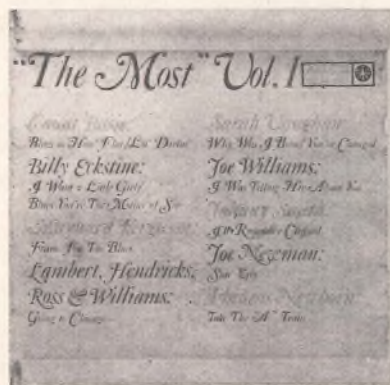 "The Most" Vol. 1
Count Basie:
Blues in Hoss' Flat/Lil' Darlin'
Billy Eckstine:
I Want a Little Girl/
Blues You're The Mother of Sin
Maynard Ferguson:
Frame For The Blues
Lambert, Hendricks,
Ross & Williams:
Going to Chicago
Sarah Vaughan:
Why Was I Born/You've Changed
Joe Williams:
I Was Telling Her About You
Smith:
I'll Remember Clifford
Joe Newman:
Phineas Newborn:
Take The "A" Train